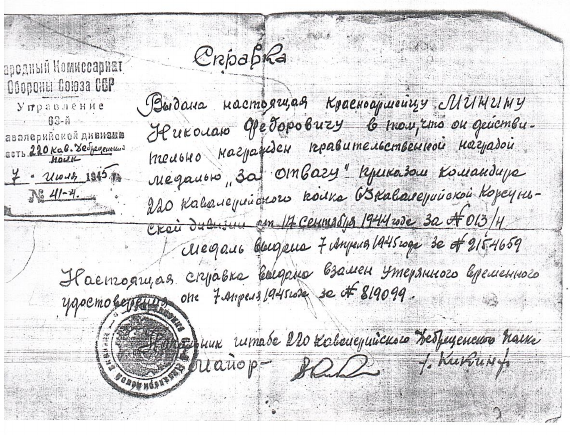 Справка
Народный Комиссариат
Обороны Союза ССР
Управление
63-й
кавалерийской дивизии
часть 220 кав. Дебреценский
полк
7 - июля 1945 г.
№ 41-4.
Выдана настоящая красноармейцу МИНИНУ
Николаю Федоровичу в том, что он действи-
тельно награжден правительственной наградой
медалью „За отвагу" приказом командира
220 кавалерийского полка 63 кавалерийской Корсунь-
ской дивизии от 17 сентября 1944 годе за № 013/4
Медаль выдана 7 Апреля 1945 годе за № 2154659
Настоящая справка выдана взамен утерянного временного
удостоверения от 7 апреля 1945 годе за № 819099.
Начальник штаба 220 кавалерийского Дебреценского полка
Майор -
/. Кикин /